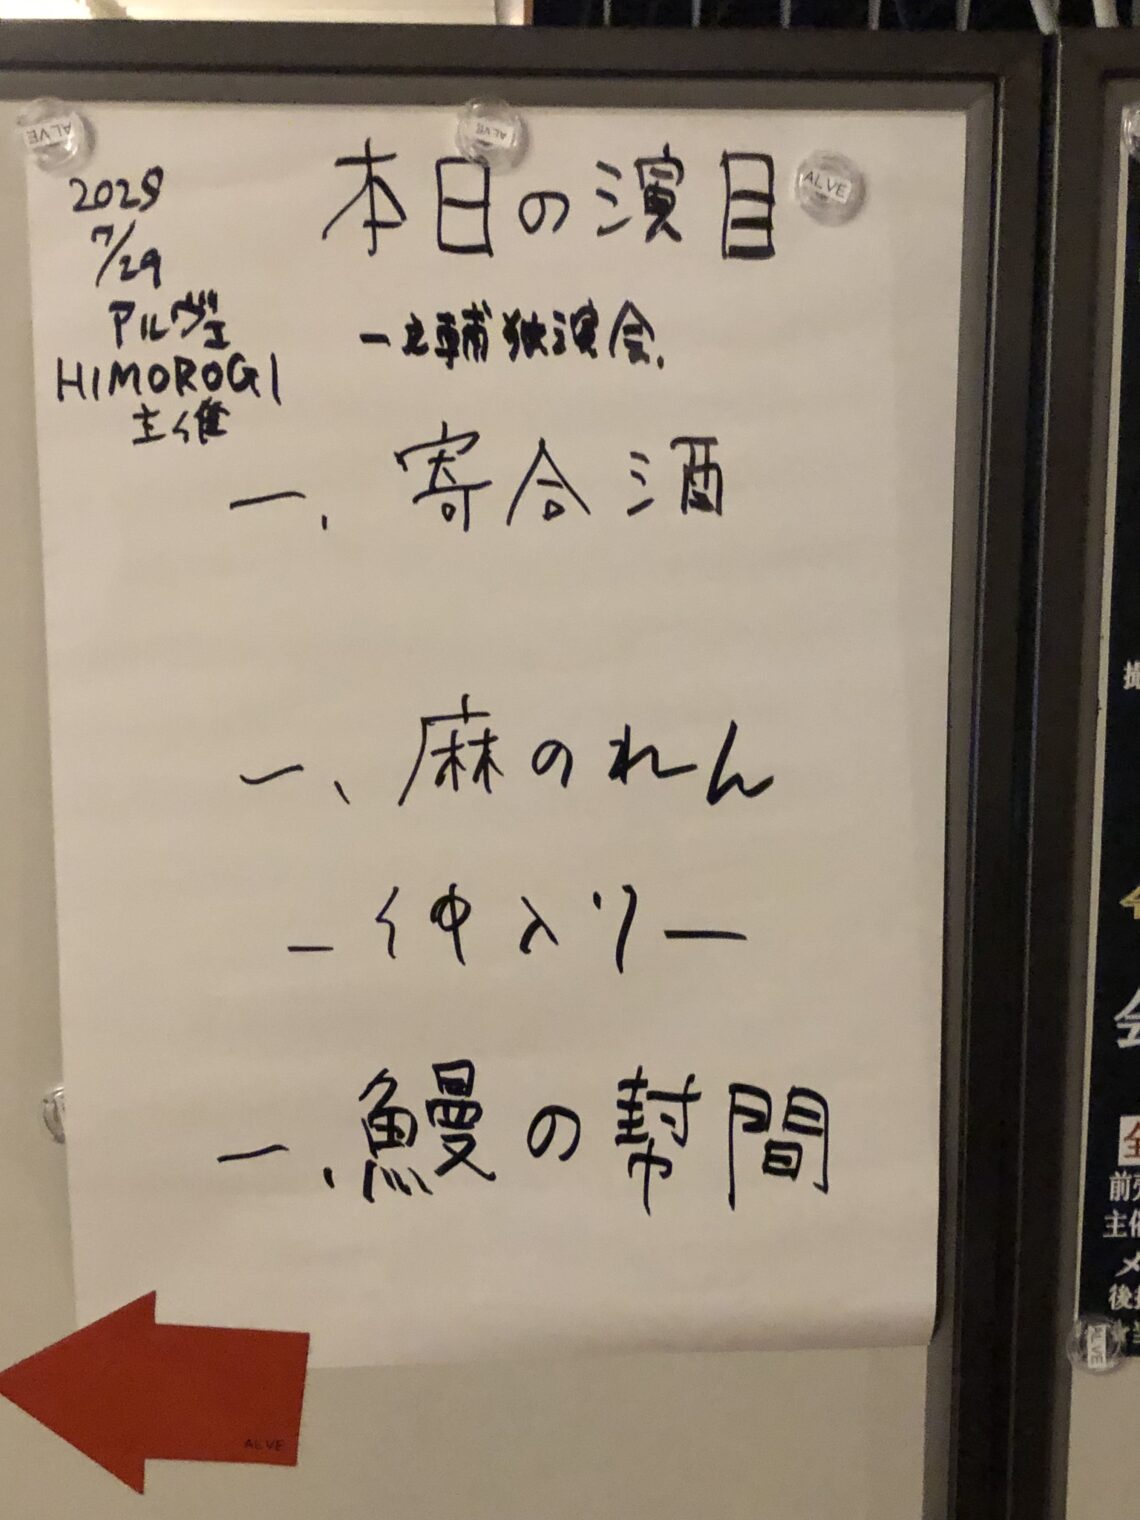 本日の演目
2025
7/29
アルヴェ
HIMOROGI
主催
一之輔独演会.
一、寄合酒
一、麻のれん
－仲入り－
一、鰻の幇間
ALVE
ALVE
ALVE
ALVE
ALVE
会
前売
主催
メ